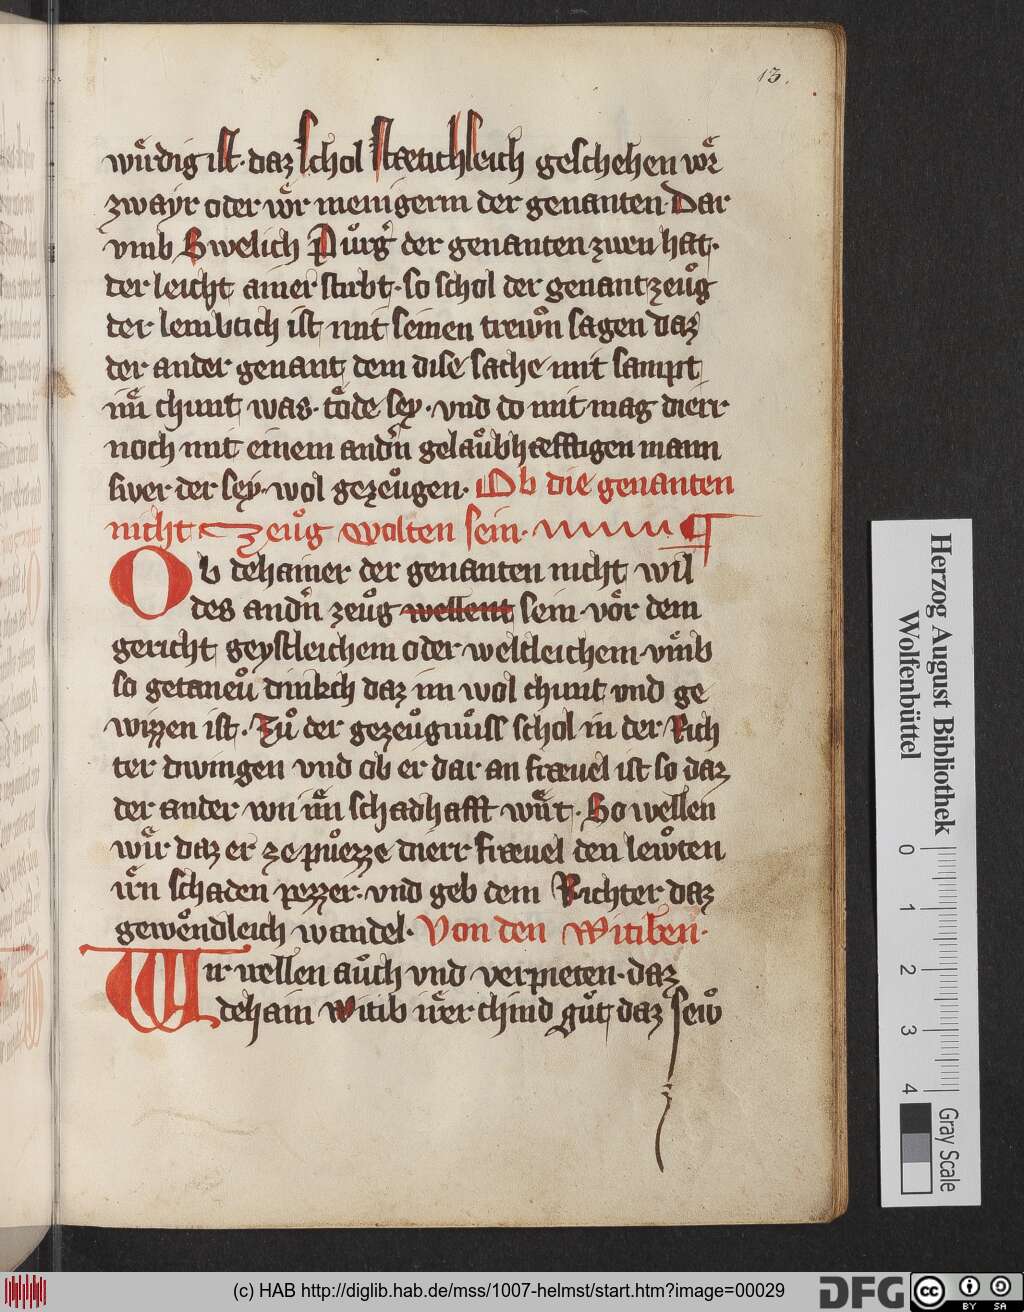 13.
wuͤrdig ist · daz schol staetichleich geschehen vor
zwayr oder vor menigerm der genanten · Dar
vmb Swelich Purger der genanten zwen hat ·
der leicht ainer stirbt · so schol der genant zeuͦg
der lembtich ist mit seinen trewn sagen daz
der ander genant dem dise sache mit sampt
im chunt was · tode sey · vnd do mit mag dierr
noch mit einem andern gelaubhaefftigen mann
swer der sey · wol gezeuͦgen · Ob die genanten
nicht Zeuͦg wolten sein ·
Ob dehainer der genanten nicht wil
des andern zeuͦg wellent sein · vor dem
gericht geystleichem oder weltleichem · vmb
so getaneu dinkch daz im wol chunt vnd ge
wizzen ist · Zuͦ der gezeuͦgnuͦss schol in der Rich
ter dwingen vnd ob er dar an fraeuel ist so daz
der ander von im schadhafft wirt · So wellen
wir daz er ze puͦezze dierr fraeuel den lewten
irn schaden pezzer · vnd geb dem Richter daz
gewondleich wandel · Von den Witiben ·
Wir wellen auch vnd verpieten · daz
dehain witib irer chind guͦt daz sew
Herzog August Bibliothek
Wolfenbüttel
0 1 2 3 4
Gray Scale
(c) HAB http://diglib.hab.de/mss/1007-helmst/start.htm?image=00029
DFG
cc BY SA